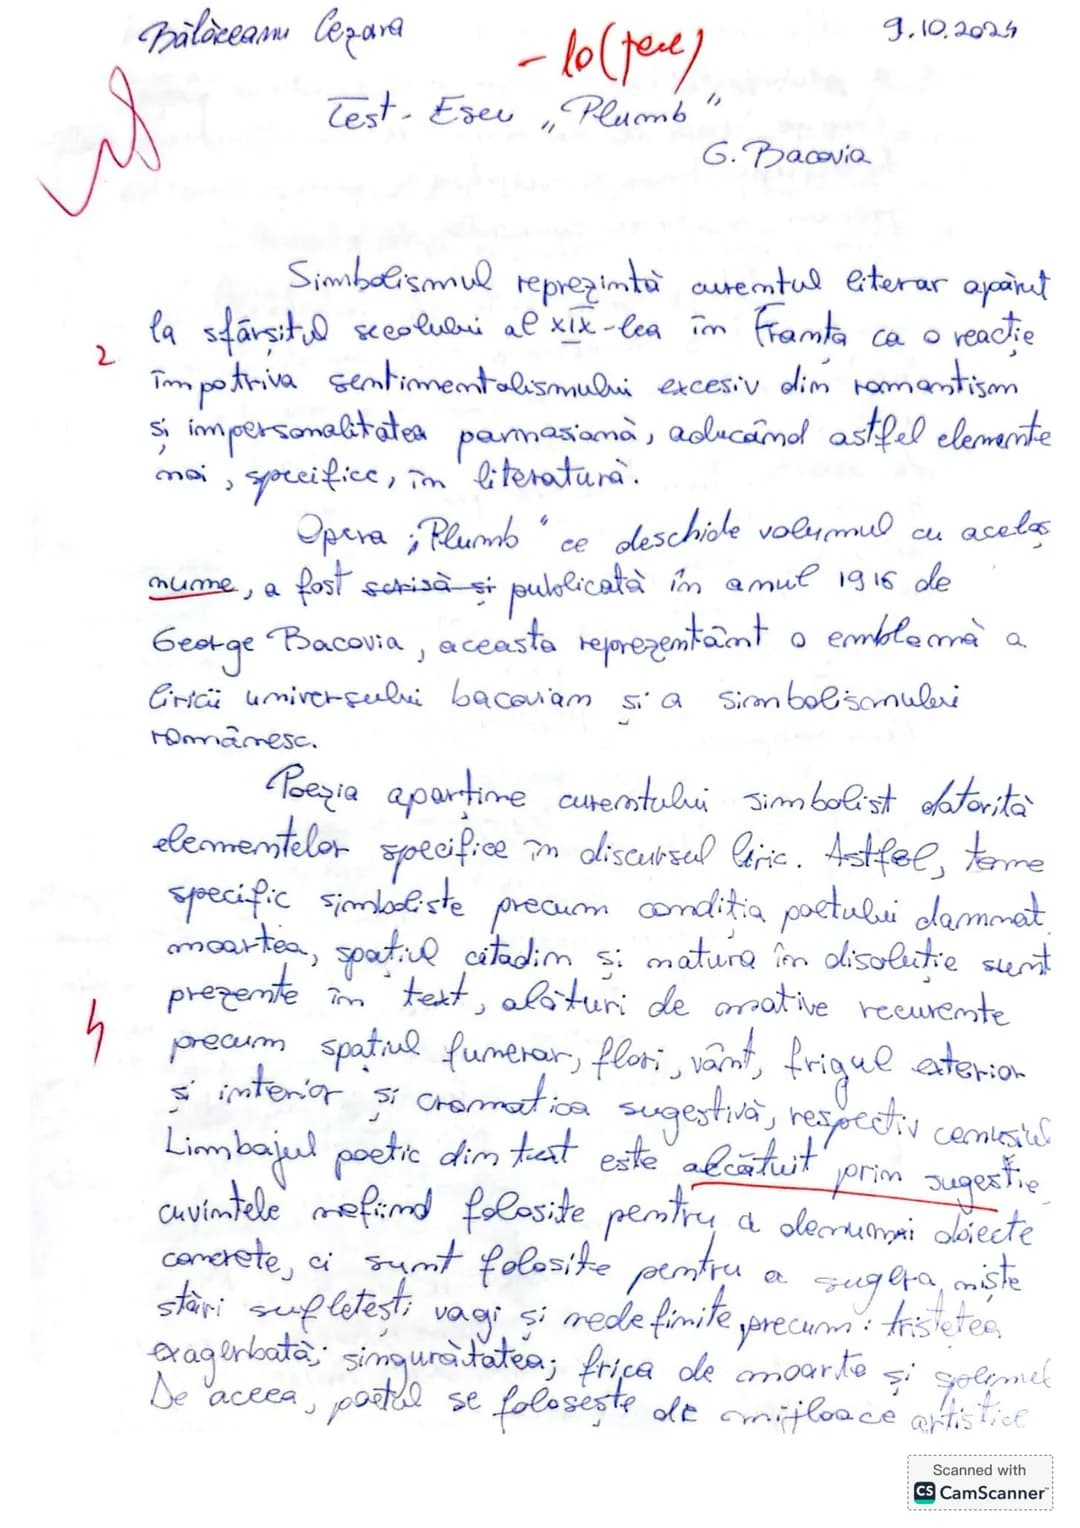 Bălăceanu Cezara 9.10.2024
- 10 (zece)
Test - Eseu „Plumb"
G. Bacovia
Simbolismul reprezintă curentul literar apărut
la sfârșitul secolului al XIX-lea în Franța ca o reacție
2
împotriva sentimentalismului excesiv din romantism
și impersonalitatea parnasiană, aducând astfel elemente
noi, specifice, în literatură.
Opera „Plumb" ce deschide volumul cu acelaș
nume, a fost scrisă și publicată în anul 1916 de
George Bacovia, aceasta reprezentânt o emblemă a
liricii universului bacovian și a simbolismului
românesc.
Poezia aparține curentului simbolist datorită
elementelor specifice în discursul liric. Astfel, teme
specific simboliste precum condiția poetului damnat
moartea, spațiul citadin și natura în disoluție sunt
prezente în text, alături de motive recurente
precum spațiul funerar, flori, vânt, frigul exterior
și interior și cromatica sugestivă, respectiv cenușiul
Limbajul poetic din text este alcătuit prin sugestie
cuvintele nefiind folosite pentru a denumi obiecte
concrete, ci sunt folosite pentru a sugera niște
stări sufletești vagi și nedefinite, precum: tristețea
exagerbată; singurătatea; frica de moarte și
De aceea, poetul se folosește de mijloace artistice
Scanned with
CS CamScanner